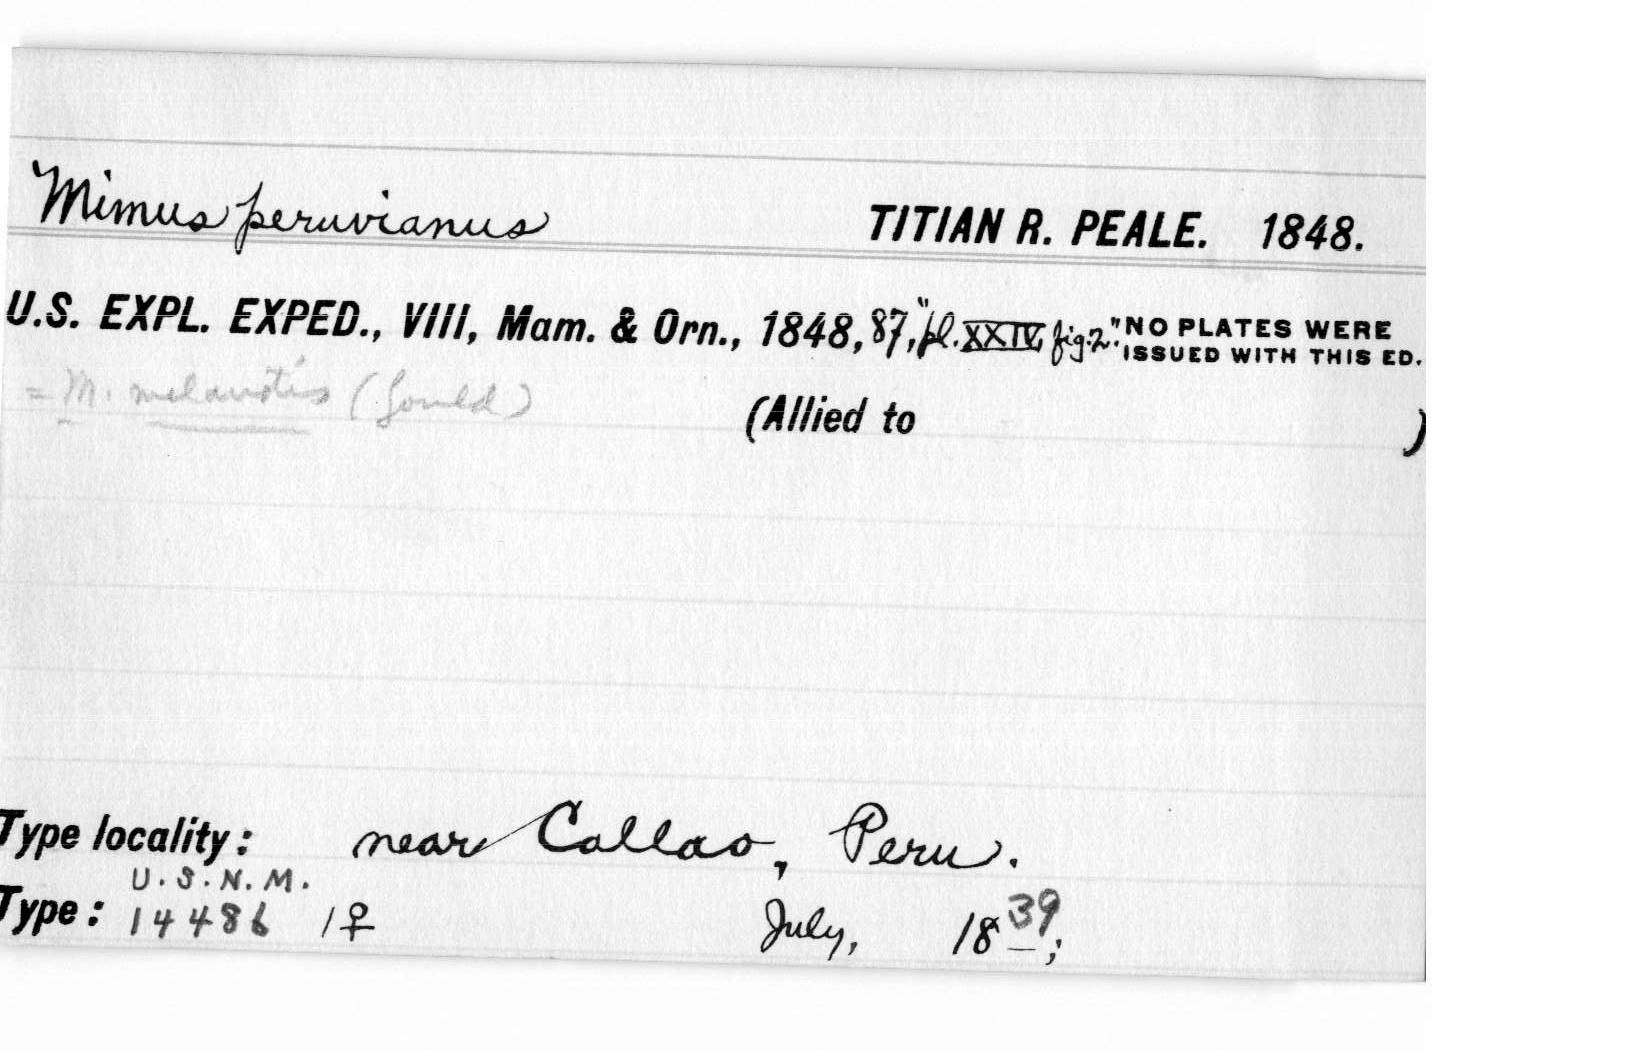 Mimus peruvianus TITIAN R. PEALE. 1848.
U.S. EXPL. EXPED., VIII, Mam. & Orn., 1848, 87, "pl. XXIV, fig. 2." NO PLATES WERE
ISSUED WITH THIS ED.
= M. melanotis (Gould)
(Allied to )
Type locality: near Callao, Peru.
U.S.N.M.
Type: 14486 1♀ July, 1839;